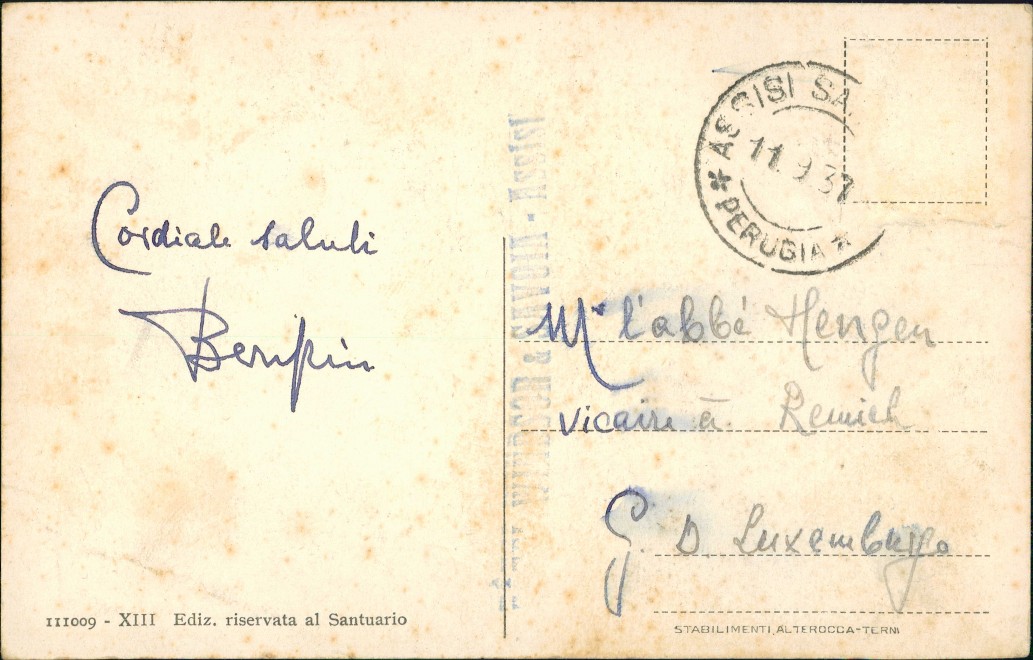 Cordiale saluti
111009 - XIII Ediz. riservata al Santuario
ASSISI SA
11.9.37
* PERUGIA *
Mr l'abbé Hengen
Vicaire à Remich
G. D. Luxemburgo
STABILIMENTI ALTEROCCA-TERNI